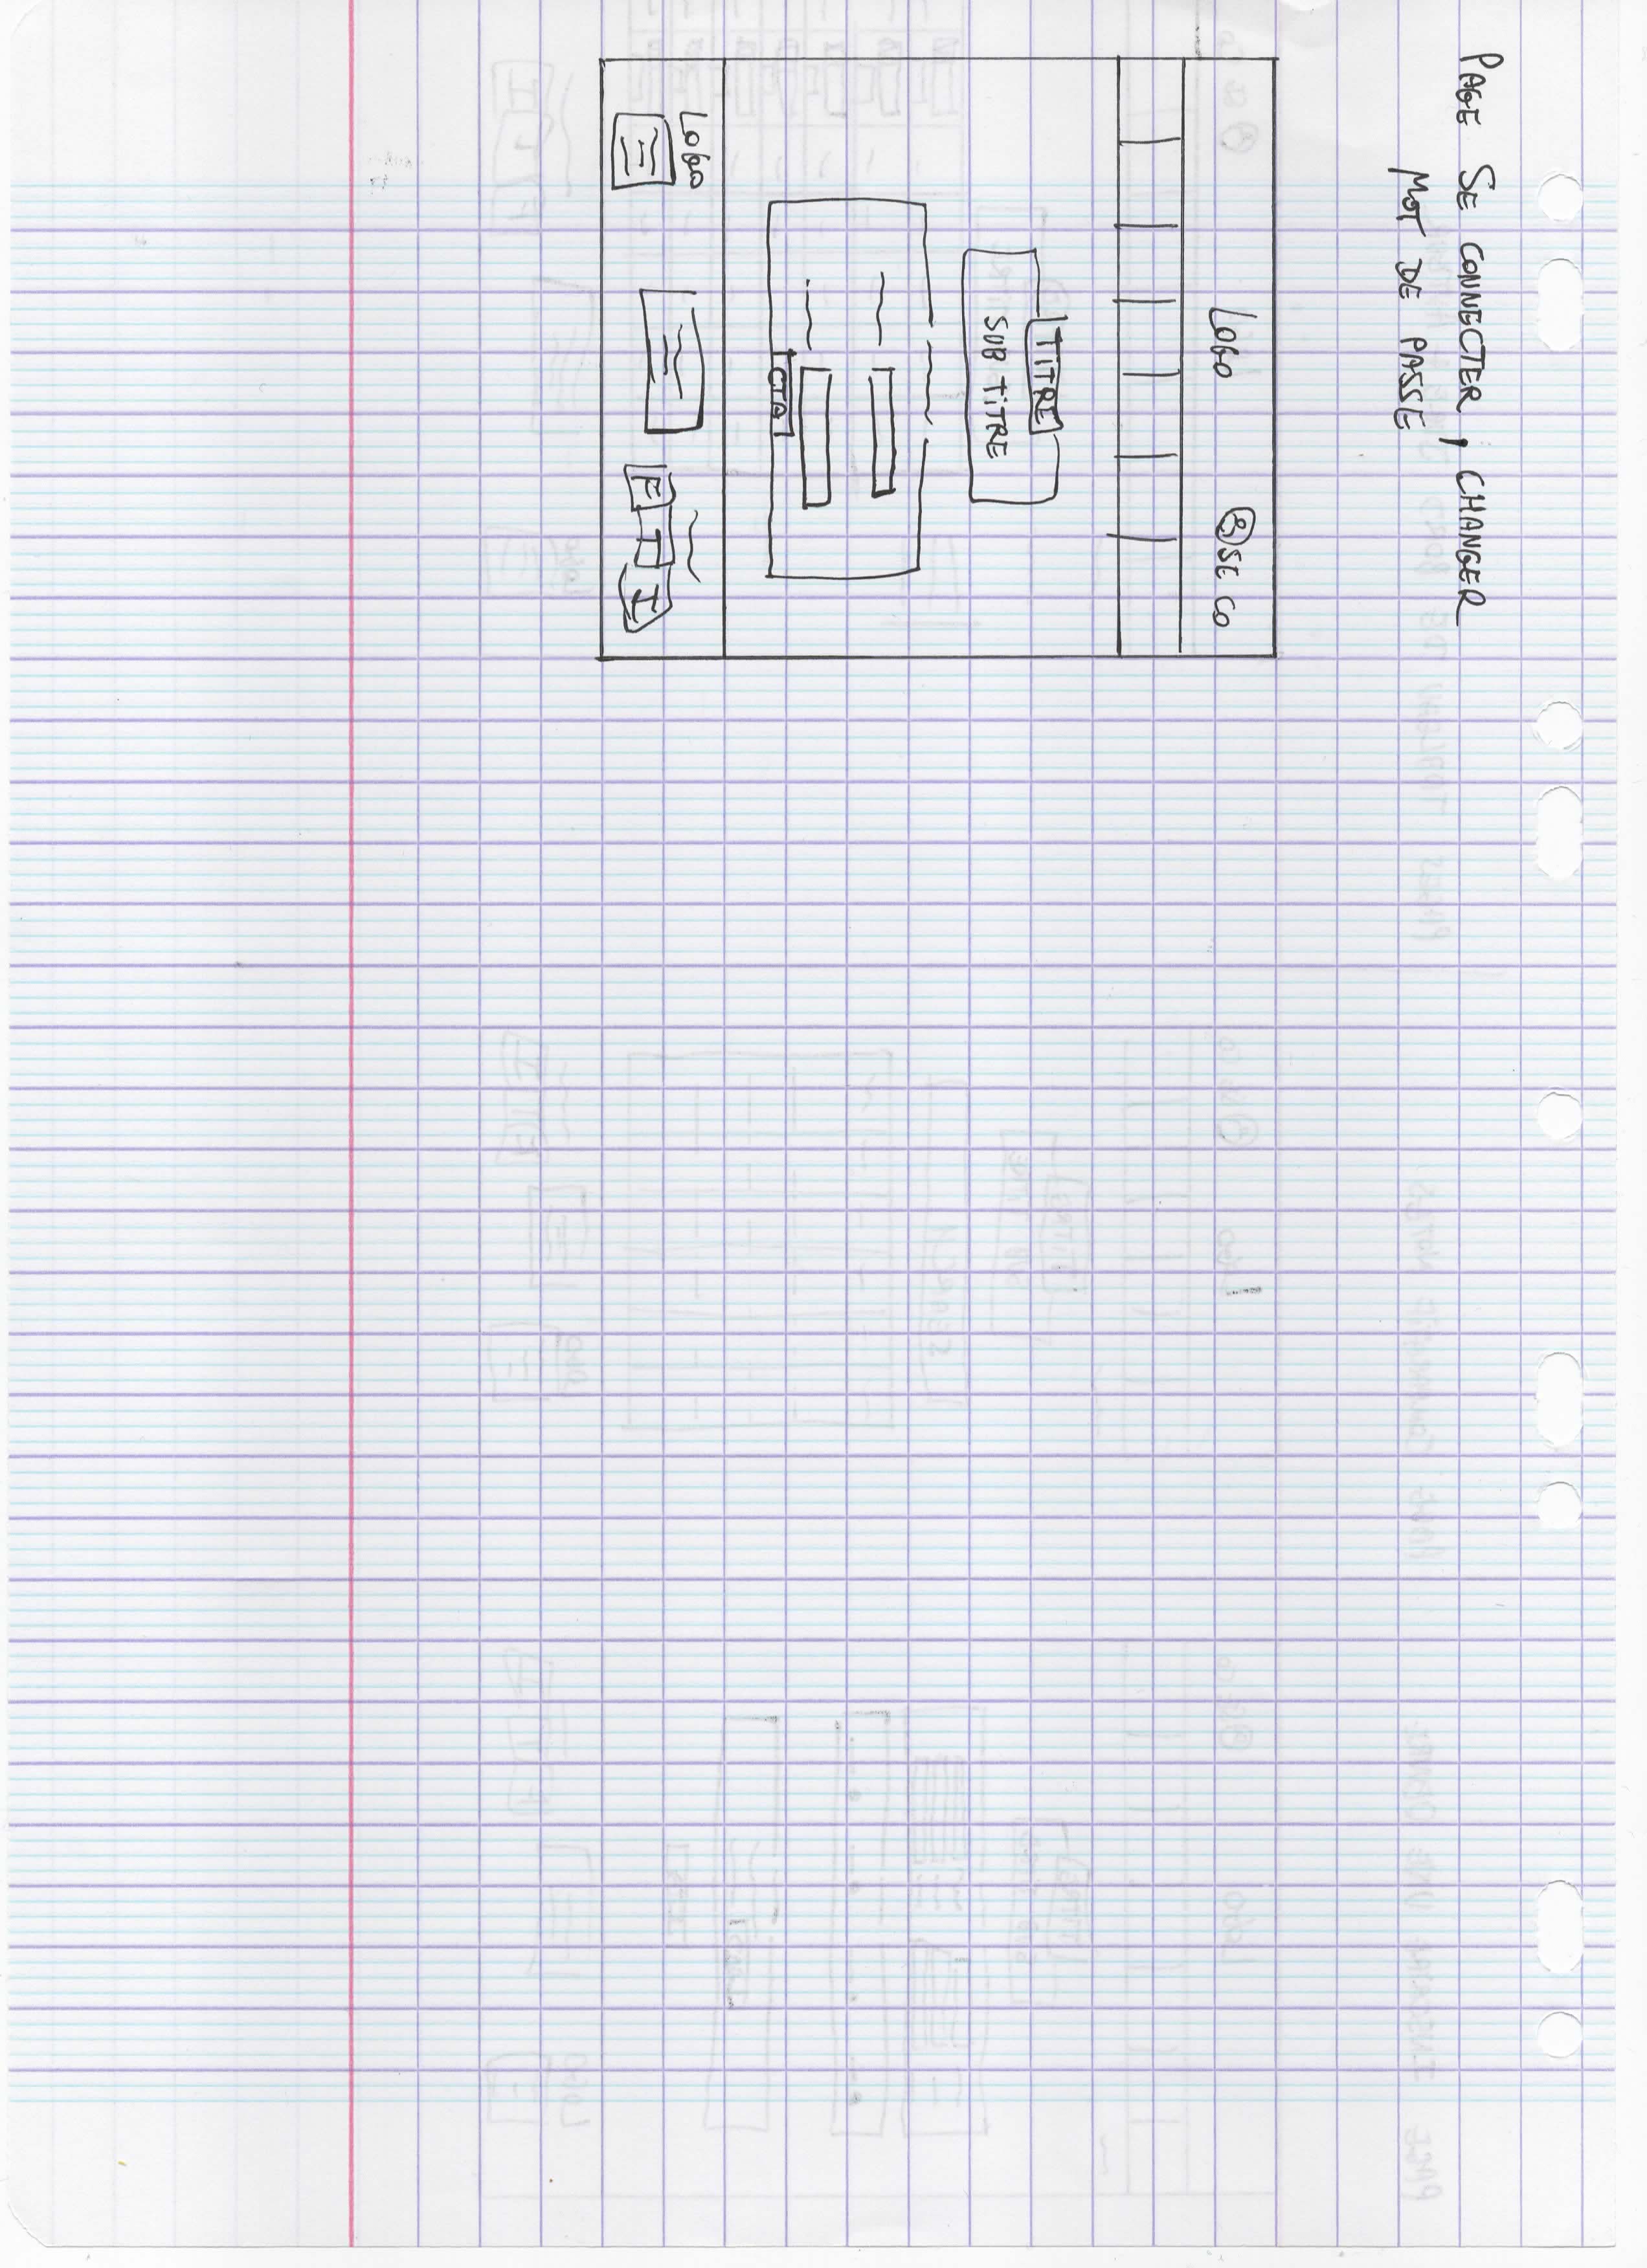 PAGE SE CONNECTER, CHANGER
MOT DE PASSE
LOGO SE CO
TITRE
SUB TITRE
CTA
LOGO
F T I